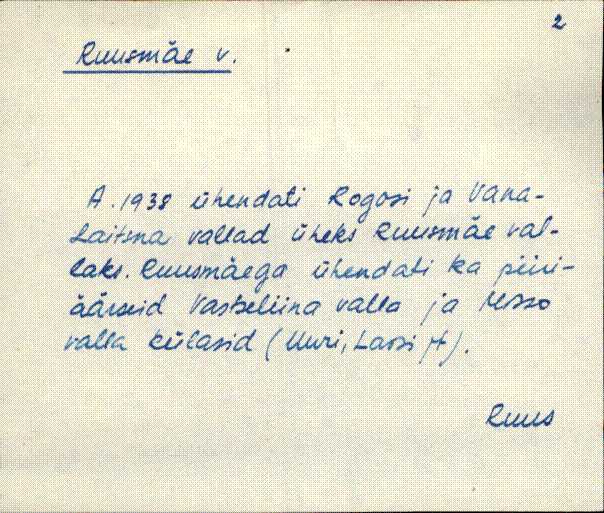 2
Ruusmäe v.
A. 1938 ühendati Rogosi ja Vana-
Laitsna vallad üheks Ruusmäe val-
laks. Ruusmäega ühendati ka piiri-
äärseid Vastseliina valla ja Misso
valla külasid (Uuri, Lassi jt).
Ruus